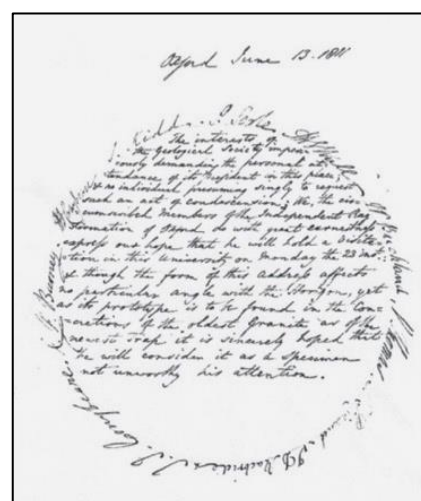 Oxford June 13. 1811
The interests of
the Geological Society imper-
iously demanding the personal at-
tendance of its President in this place,
& no individual presuming singly to request
such an act of condescension; We, the cir-
cumscribed Members of the Independent Rag
formation of Oxford do with great earnestness
express our hope that he will hold a Visita-
tion in this University on Monday the 23 Inst:
& though the form of this Address affects
no particular angle with the Horizon, yet
as its prototype is to be found in the Con-
cretions of the oldest Granite as of the
newest Trap it is sincerely hoped that
he will consider it as a Specimen
not unworthy his attention.
W Buckland
J. J. Conybeare